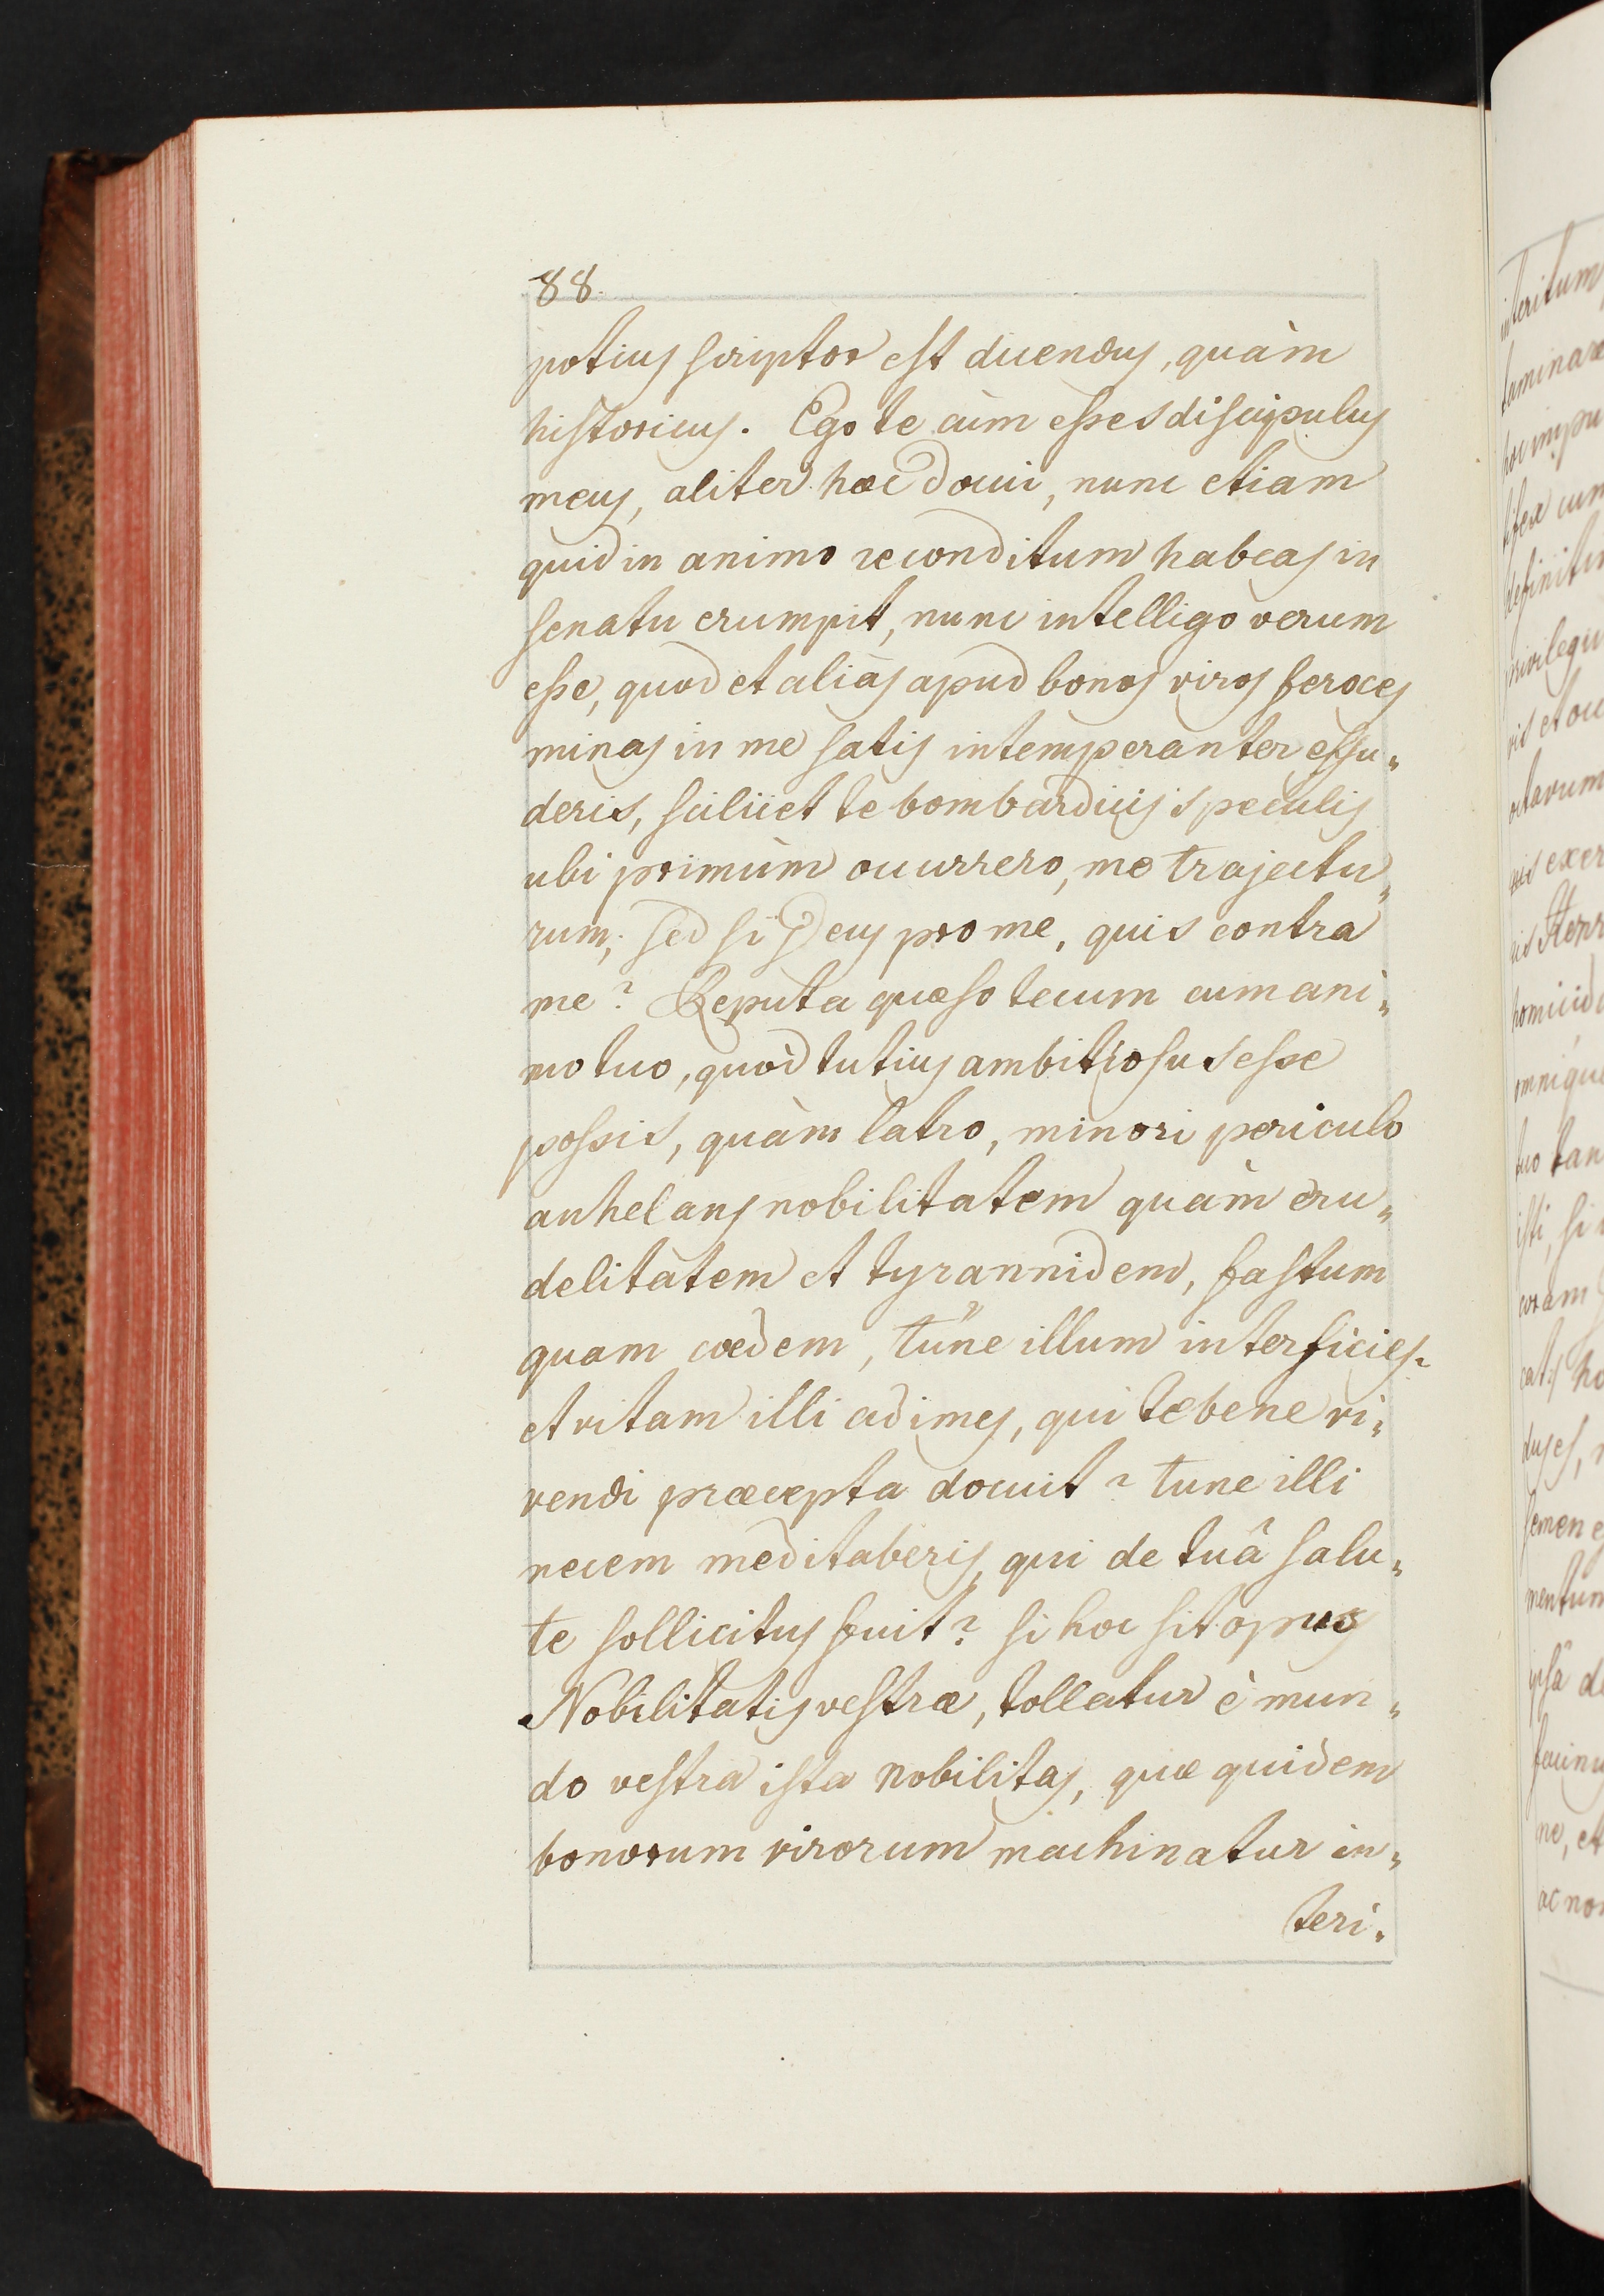 88.
potius scriptor est dicendus, quàm
historicus. Ego te cùm esses discipulus
meus, aliter hæc docui, nunc etiam
quid in animo reconditum habeas in
senatu erumpit, nunc intelligo verum
esse, quod et aliàs apud bonos viros feroces
minas in me satis intemperanter effu„
deris, scilicet te bombardicis speculis
ubi primùm occurrero, me trajectu„
rum; sed si Deus pro me, quis contra
me? Reputa quæso tecum cum ani„
mo tuo, quòd tutius ambitiosus esse
possis, quàm latro, minori periculo
anhelans nobilitatem quàm cru„
delitatem et tyrannidem, fastum
quam cœdem, tune illum interficies?
et vitam illi adimes, qui te bene vi„
vendi præcepta docuit? tune illi
necem meditaberis, qui de tuâ salu„
te sollicitus fuit? si hoc sit opus
Nobilitatis vestræ, tollatur è mun„
do vestra ista nobilitas, quæ quidem
bonorum virorum machinatur in„
teri„
interitum
taminare
hoc impu
tifex cum
definitiv
privilegii
vis et oc
octavum
uis exer
uis Henr
homicid
omnique
tuo tan
isti, si
coram
catis ho
dus es,
semen e
mentum
ipsâ de
facinus
ne, et
ac non